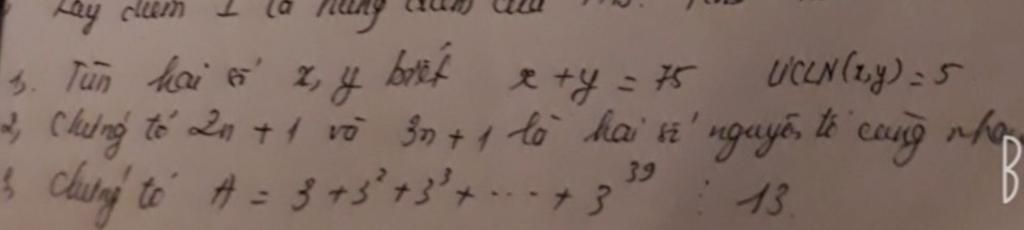 Lấy điểm I là trung điểm của
1. Tìm hai số x, y biết x + y = 75 ƯCLN(x,y) = 5
2, Chứng tỏ 2n + 1 và 3n + 1 là hai số nguyên tố cùng nhau
3, Chứng tỏ A = 3 + 3² + 3³ + ... + 3³⁹ ⋮ 13.
B